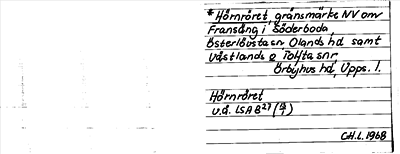 *Hörnröret, gränsmärke NV om
Fransäng i Söderboda,
Österlövsta sn Olands hd samt
Västlands o Tolfta snr
Örbyhus hd, Upps. l.
Hörnröret
u.å. LSA B27 (4/1)
C.H.L. 1968